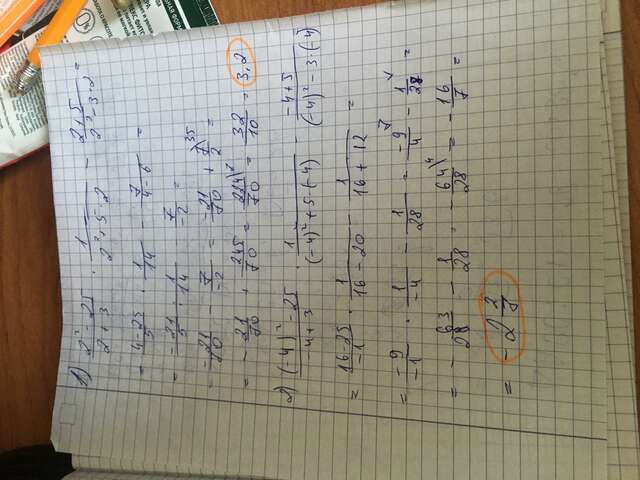 1) (2² - 25)/(2 + 3) · 1/(2² + 5 · 2) - (2 + 5)/(2² - 3 · 2) =
= (4 - 25)/5 · 1/14 - 7/(4 - 6) =
= (-21)/5 · 1/14 - 7/(-2) =
= -21/70 - 7/(-2) = -21/70 + 7/2 =
= -21/70 + 245/70 = 224/70 = 32/10 = 3,2
2) ((-4)² - 25)/(-4 + 3) · 1/((-4)² + 5 · (-4)) - (-4 + 5)/((-4)² - 3 · (-4)) =
= (16 - 25)/(-1) · 1/(16 - 20) - 1/(16 + 12) =
= (-9)/(-1) · 1/(-4) - 1/28 = (-9)/4 - 1/28 =
= -63/28 - 1/28 = -64/28 = -16/7 =
= -2 2/7